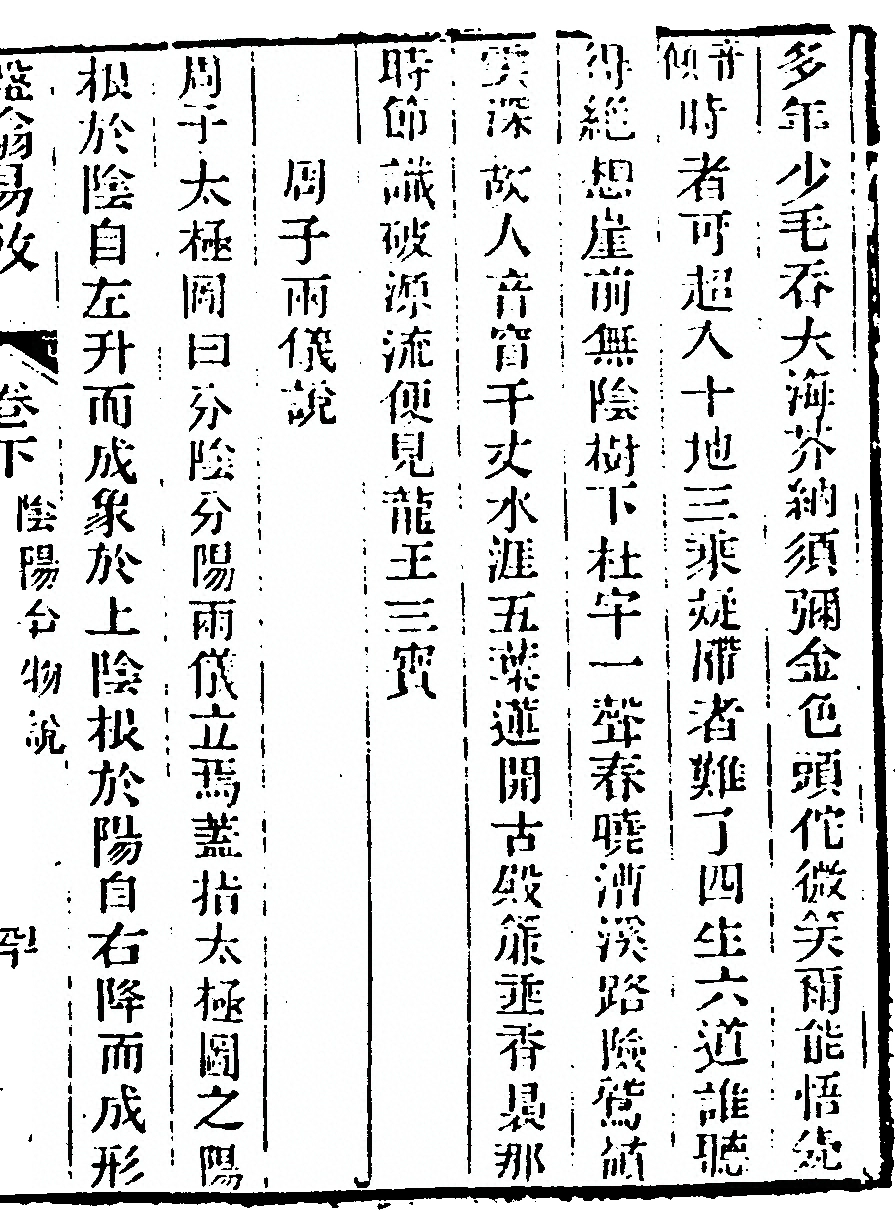 多年少毛吞大海芥納須彌金色頭佗微笑爾能悟絶
音傾時者可超人十地三乘疑滯者難了四生六道誰聽
得絶想崖前無陰樹下杜宇一聲春曉漕溪路險鷲嶺
雲深故人音窅千丈水涯五葉蓮開古殿簾垂香裊那
時節識破源流便見龍王三寶
周子兩儀說
周子太極圖曰分陰分陽兩儀立焉蓋指太極圖之陽
根於陰自左升而成象於上陰根於陽自右降而成形
盤翁易攷
卷下
陰陽合物說